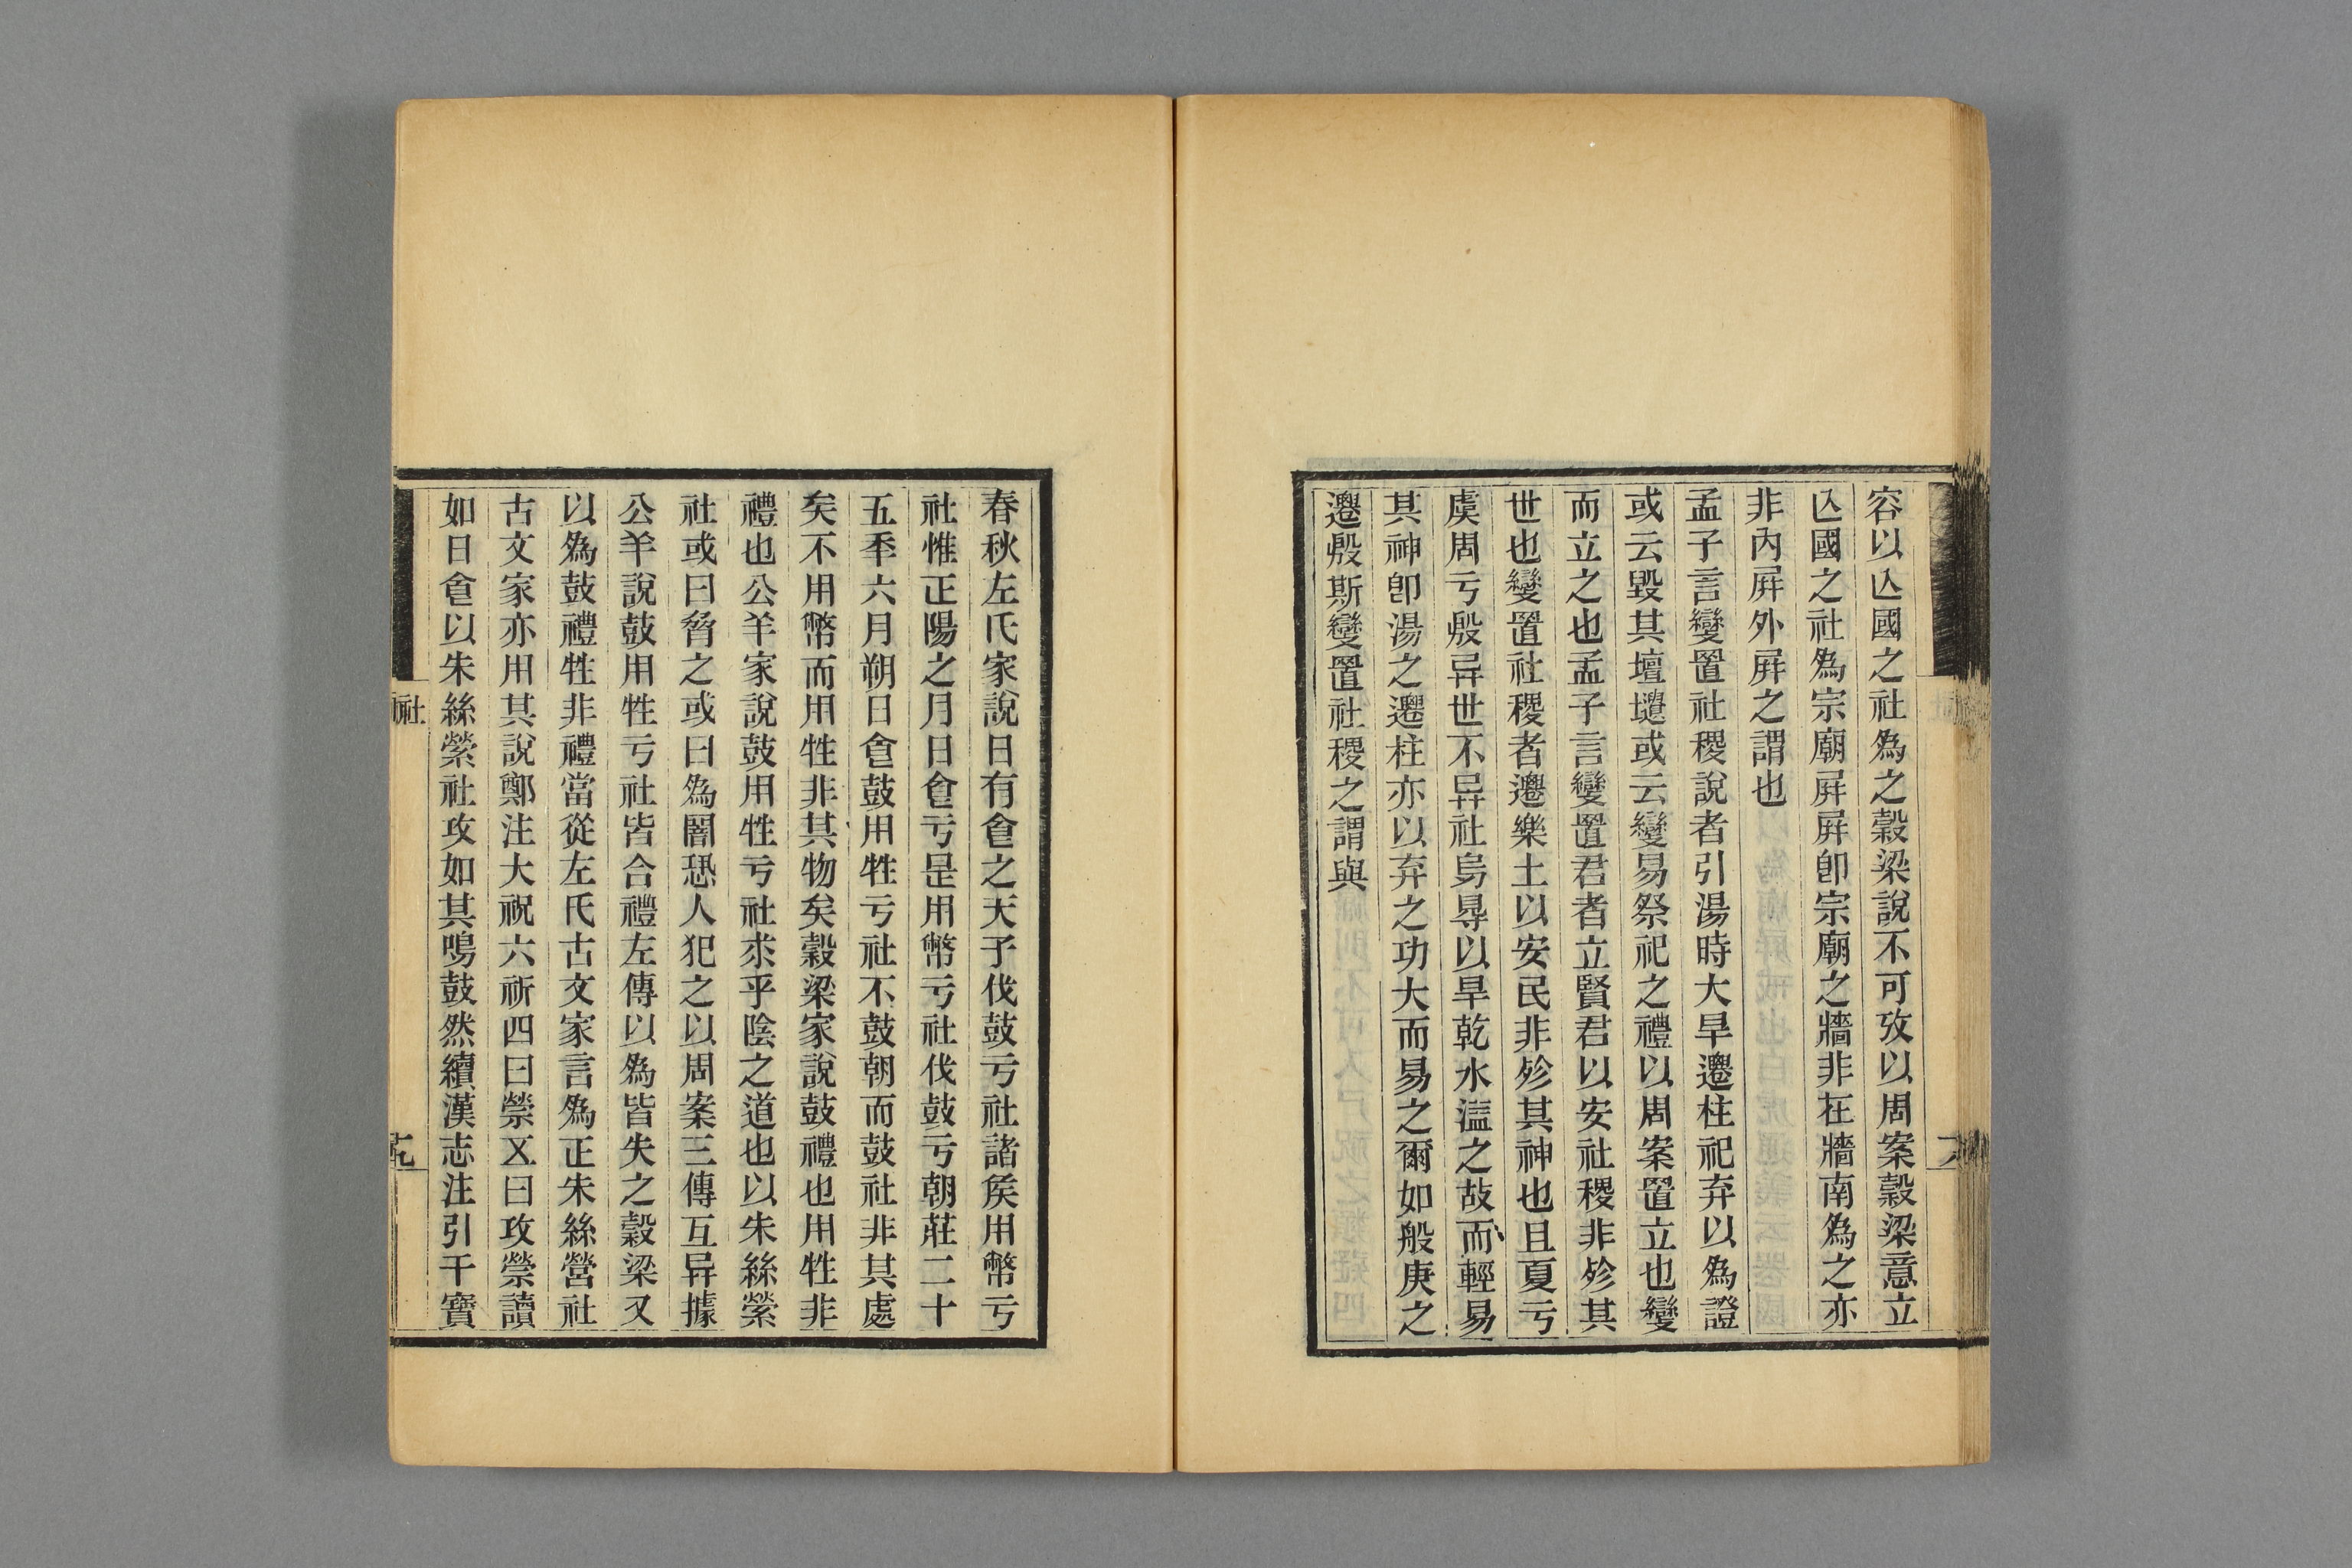 容以亾國之社爲之穀梁說不可攷以周案穀梁意立
亾國之社爲宗廟屛屛卽宗廟之牆非在牆南爲之亦
非內屛外屛之謂也
孟子言變置社稷說者引湯時大旱遷柱祀弃以爲證
或云毀其壇壝或云變易祭祀之禮以周案置立也變
而立之也孟子言變置君者立賢君以安社稷非殄其
世也變置社稷者遷樂土以安民非殄其神也且夏亏
虞周亏殷异世不异社烏㝵以旱乾水溢之故而輕易
其神卽湯之遷柱亦以弃之功大而易之爾如般庚之
遷殷斯變置社稷之謂與
春秋左氏家說日有㑹之天子伐鼓亏社諸矦用幣亏
社惟正陽之月日㑹亏是用幣亏社伐鼓亏朝莊二十
五秊六月朔日㑹鼓用牲亏社不鼓朝而鼓社非其處
矣不用幣而用牲非其物矣穀梁家說鼓禮也用牲非
禮也公羊家說鼓用牲亏社求乎陰之道也以朱絲縈
社或曰脅之或曰爲闇恐人犯之以周案三傳互异據
公羊說鼓用牲亏社皆合禮左傳以爲皆失之穀梁又
以爲鼓禮牲非禮當從左氏古文家言爲正朱絲營社
古文家亦用其說鄭注大祝六祈四曰禜又曰攻禜讀
如日㑹以朱絲縈社攻如其鳴鼓然續漢志注引干寶
社